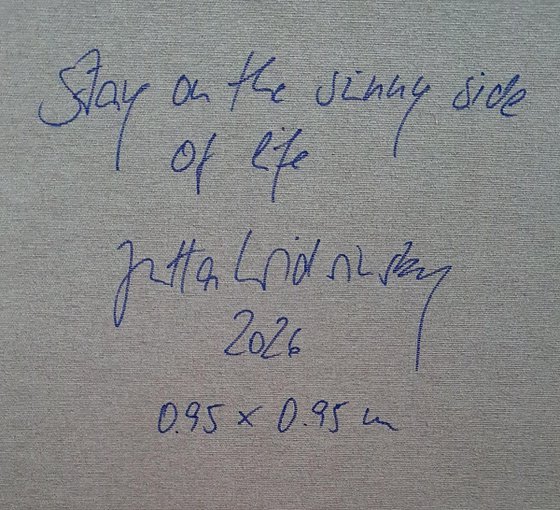 Stay on the sunny side
of life
Jutta
2026
0.95 x 0.95 m